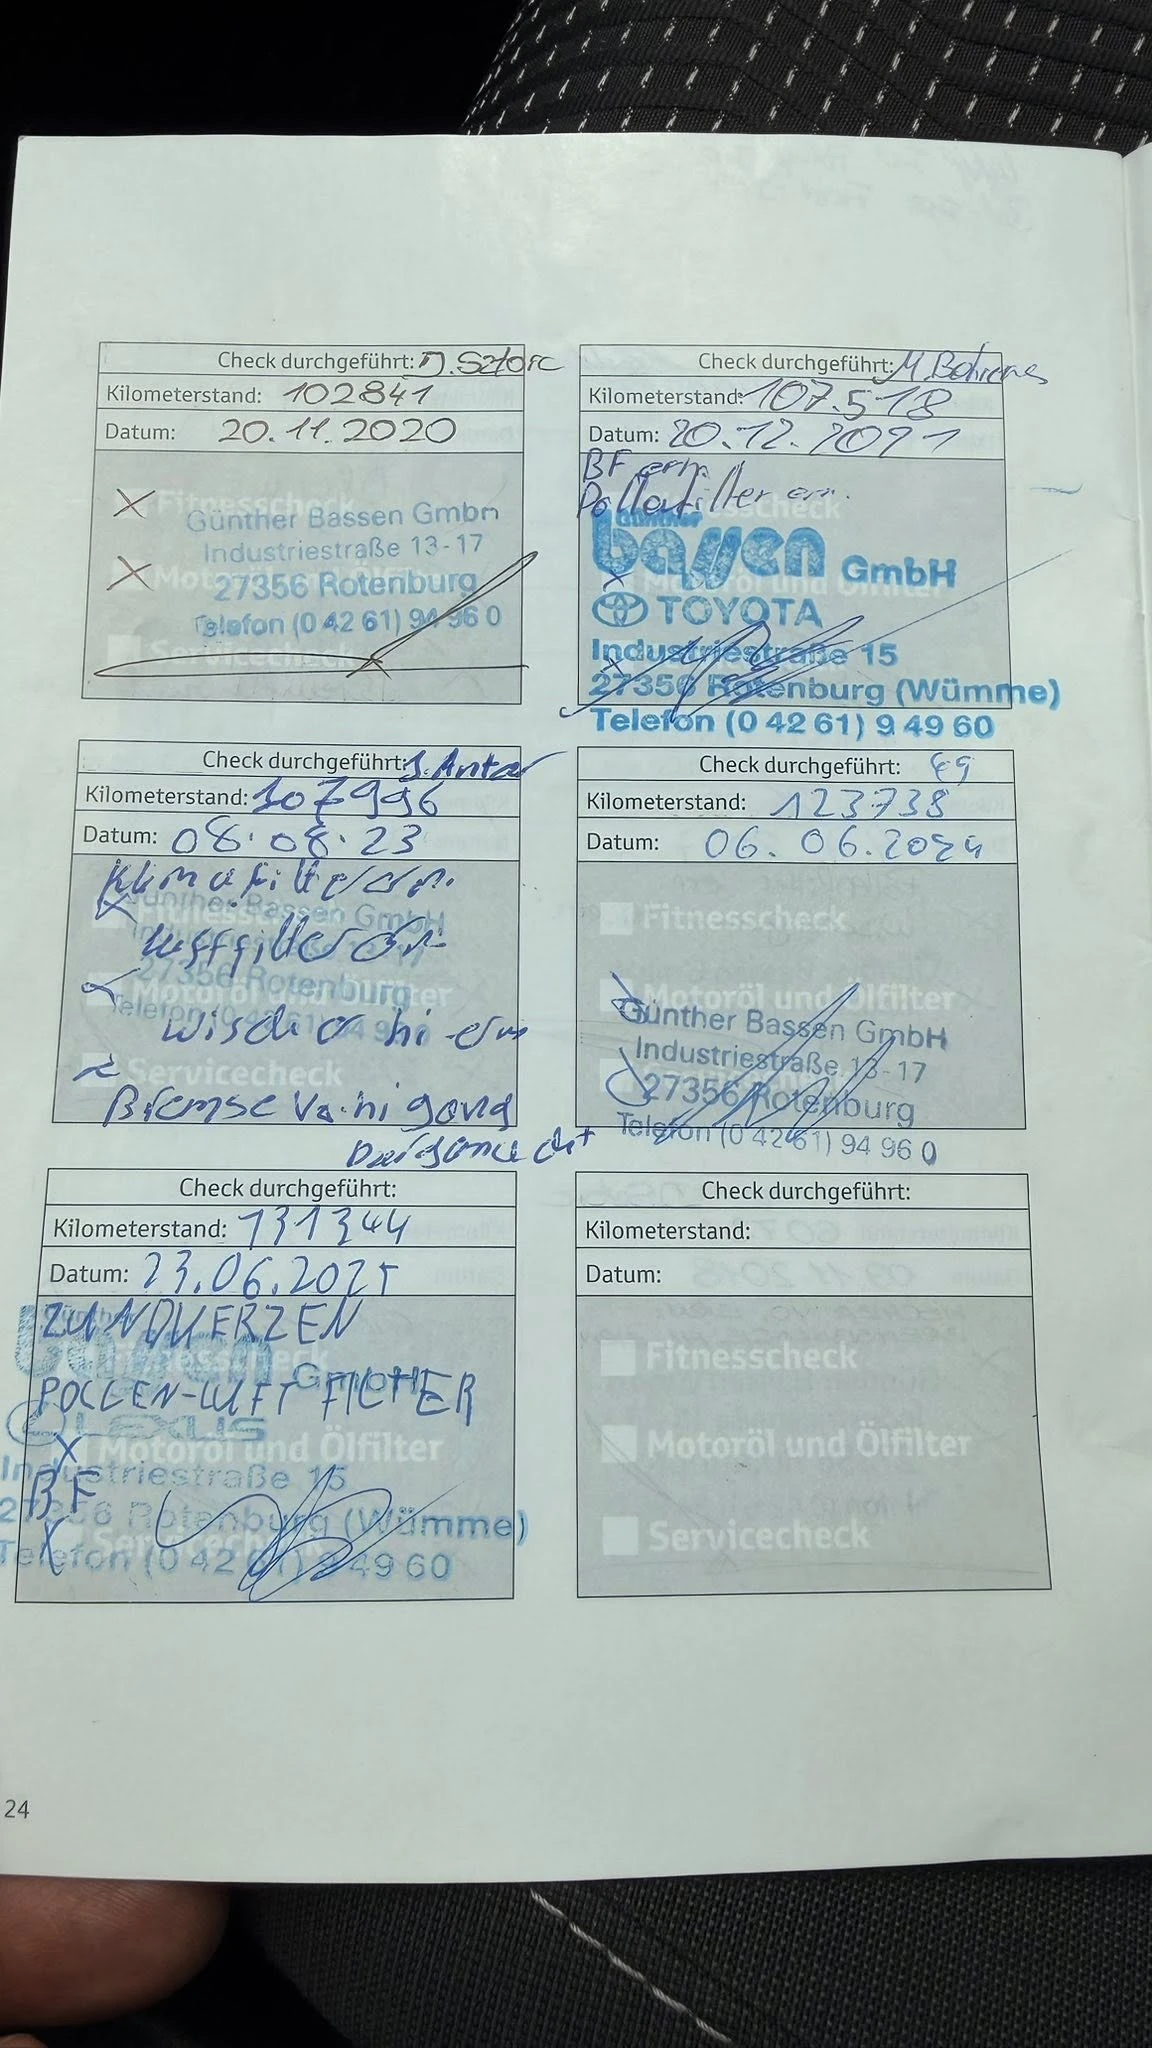 Check durchgeführt: D. Sztorc
Kilometerstand: 102841
Datum: 20.11.2020
Fitnesscheck
Günther Bassen GmbH
Industriestraße 13-17
Motoröl und Ölfilter
27356 Rotenburg
Telefon (0 42 61) 94 96 0
Servicecheck
Check durchgeführt: M. Behrens
Kilometerstand: 107.518
Datum: 20.12.2021
BF ern.
Pollenfilter ern.
Fitnesscheck
Günther
bassen GmbH
Motoröl und Ölfilter
TOYOTA
Industriestraße 15
27356 Rotenburg (Wümme)
Telefon (0 42 61) 9 49 60
Check durchgeführt: J. Antar
Kilometerstand: 107996
Datum: 08.08.23
Klimafilter ern.
Günther Bassen GmbH
Fitnesscheck
Luftfilter ern
27356 Rotenburg
Motoröl und Ölfilter
Telefon (0 42 61) 94 96 0
Wischer hi ern
Servicecheck
Bremse
Check durchgeführt:
Kilometerstand: 123738
Datum: 06.06.2024
Fitnesscheck
Motoröl und Ölfilter
Günther Bassen GmbH
Industriestraße 13-17
27356 Rotenburg
Telefon (0 42 61) 94 96 0
Check durchgeführt:
Kilometerstand: 131344
Datum: 23.06.2025
ZÜNDKERZEN
Günther
bassen GmbH
Fitnesscheck
POLLEN-LUFT FILTER
LEXUS
Motoröl und Ölfilter
Industriestraße 15
BF
27356 Rotenburg (Wümme)
Servicecheck
Telefon (0 42 61) 9 49 60
Check durchgeführt:
Kilometerstand:
Datum:
Fitnesscheck
Motoröl und Ölfilter
Servicecheck
24